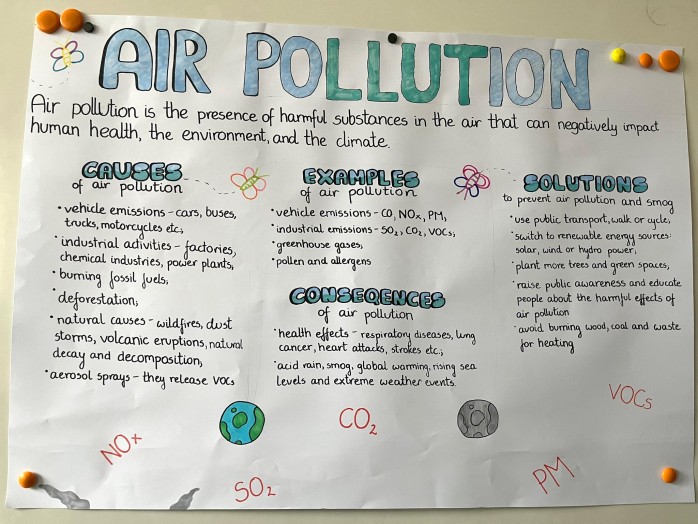 AIR POLLUTION
Air pollution is the presence of harmful substances in the air that can negatively impact
human health, the environment, and the climate.
CAUSES
of air pollution
• vehicle emissions - cars, buses,
trucks, motorcycles etc.;
• industrial activities - factories,
chemical industries, power plants;
• burning fossil fuels;
• deforestation;
• natural causes - wildfires, dust
storms, volcanic eruptions, natural
decay and decomposition;
• aerosol sprays - they release VOCs
EXAMPLES
of air pollution
• vehicle emissions - CO, NOx, PM,
• industrial emissions - SO₂, CO₂, VOCs,
• greenhouse gases,
• pollen and allergens
CONSEQENCES
of air pollution
• health effects - respiratory diseases, lung
cancer, heart attacks, strokes etc.;
• acid rain, smog, global warming, rising sea
levels and extreme weather events.
SOLUTIONS
to prevent air pollution and smog
• use public transport, walk or cycle,
• switch to renewable energy sources:
solar, wind or hydro power,
• plant more trees and green spaces,
• raise public awareness and educate
people about the harmful effects of
air pollution
• avoid burning wood, coal and waste
for heating
NOx
SO₂
CO₂
PM
VOCs